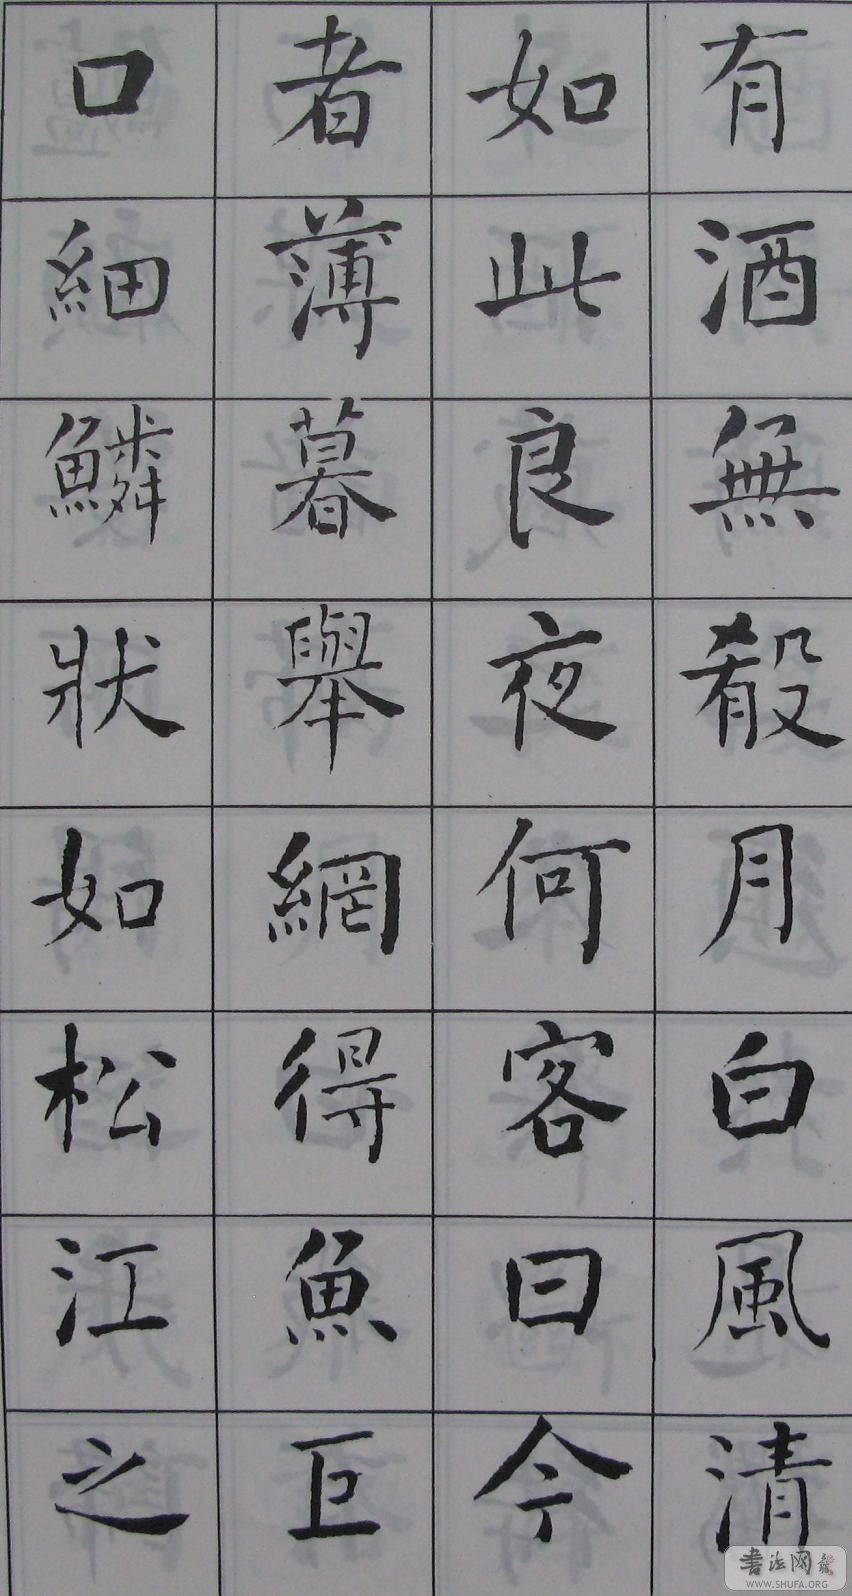 有酒無殽月白風清
如此良夜何客曰今
者薄暮舉網得魚巨
口細鱗狀如松江之
書法网
WWW.SHUFA.ORG